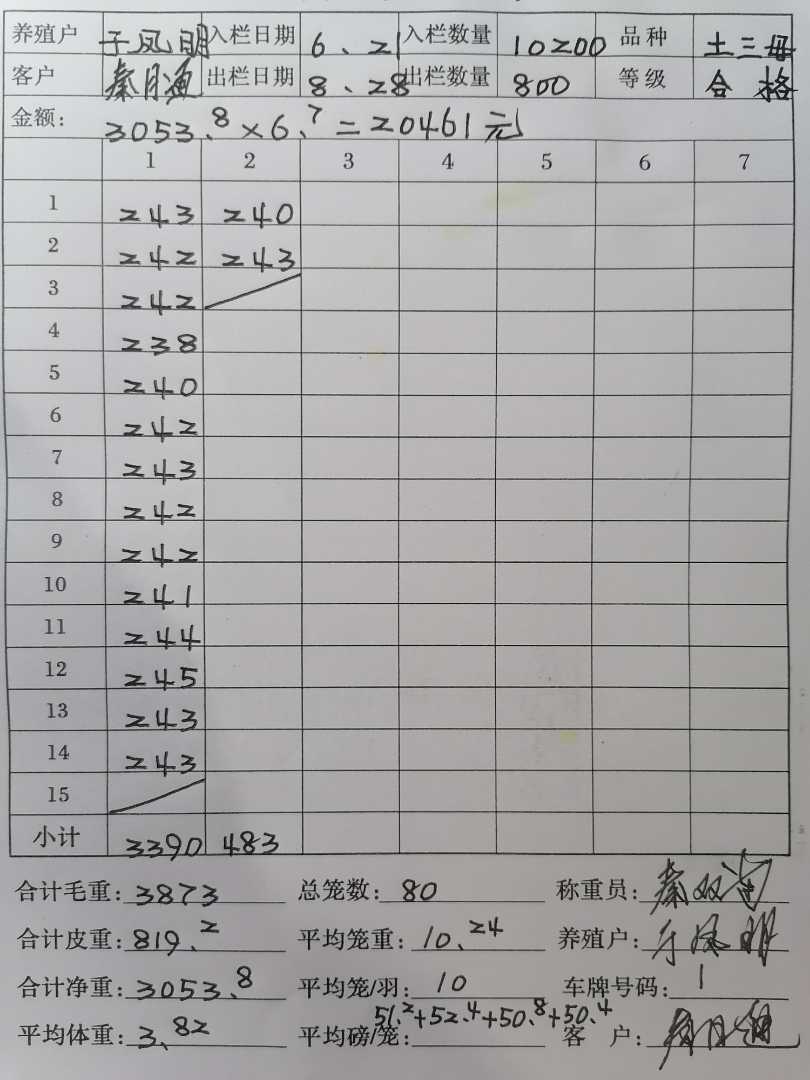 养殖户 于凤明 入栏日期 6、21 入栏数量 10200 品种 土三母
客户 秦月通 出栏日期 8、28 出栏数量 800 等级 合格
金额: 3053.8×6.7=20461元
1 2 3 4 5 6 7
1 243 240
2 242 243
3 242
4 238
5 240
6 242
7 243
8 242
9 242
10 241
11 244
12 245
13 243
14 243
15
小计 3390 483
合计毛重: 3873 总笼数: 80 称重员:
合计皮重: 819.2 平均笼重: 10.24 养殖户: 于凤明
合计净重: 3053.8 平均笼/羽: 10 车牌号码: 1
51.2+52.4+50.8+50.4
平均体重: 3.82 平均磅/笼: 客户: 秦月通